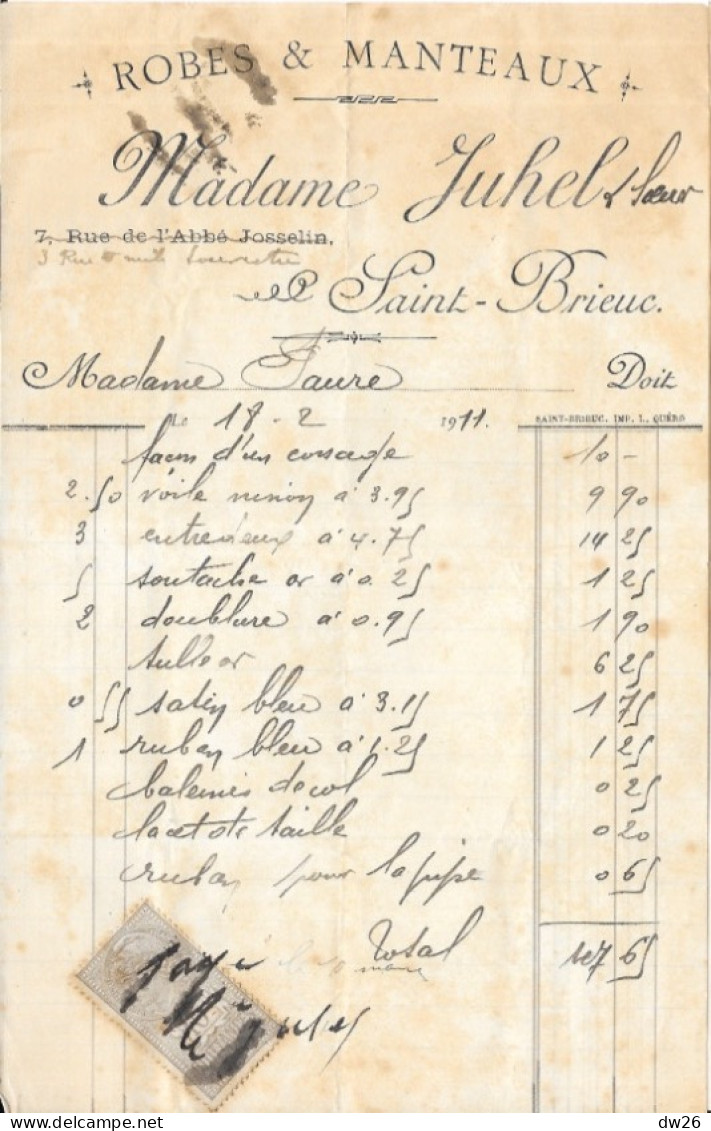 ROBES & MANTEAUX
Madame Juhel & Soeur
7, Rue de l'Abbé Josselin,
3 Rue Souvestre
Saint-Brieuc.
Madame Faure Doit
Le 18 - 2 1911. SAINT-BRIEUC, IMP. L. QUÉRO
façon d'un corsage 10 -
2.50 voile ninon à 3.95 9 90
3 entredeux à 4.75 14 25
5 soutache or à 0.25 1 25
2 doublure à 0.95 1 90
tulle or 6 25
0 55 satin bleu à 3.15 1 75
1 ruban bleu à 1.25 1 25
baleines de col 0 25
lacet de taille 0 20
ruban pour la jupe 0 65
Total 47 65
Juhel
dw26